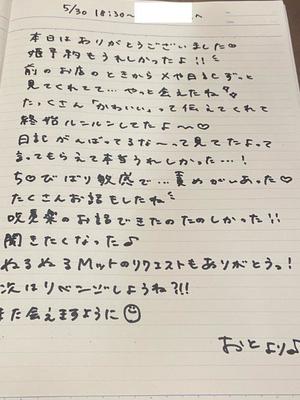 5/30 18:30～
本日はありがとうございました♡
姫予約もうれしかったよ!!
前のお店のときからXや日記ずっと
見てくれてて…やっと会えたね?
たっくさん「かわいい」って伝えてくれて
終始ルンルンしてたよ〜♡
日記がんばってるな〜って見てたよって
言ってもらえて本当うれしかった…!
ち♡びばり敏感で…責めがいあった♡
たくさんお話もしたね
吹奏楽のお話できたのたのしかった!!
聞きたくなった♪
ぬるぬるMットのリクエストもありがとうっ!
次はリベンジしようね?!!
また会えますように☺
おとより♪